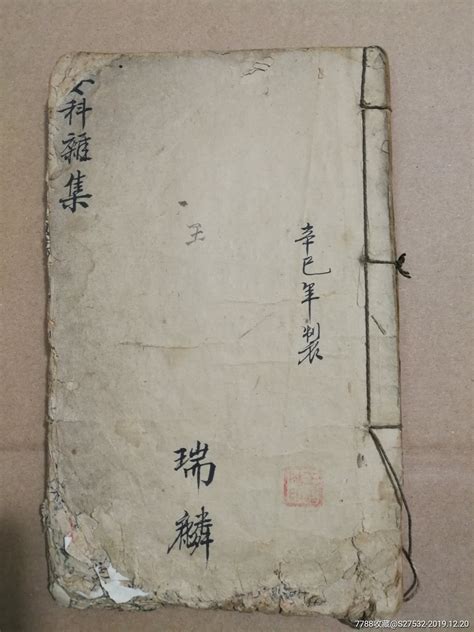 辛巳年製
王
瑞麟
科雜集
7788收藏@S27532-2019.12.20